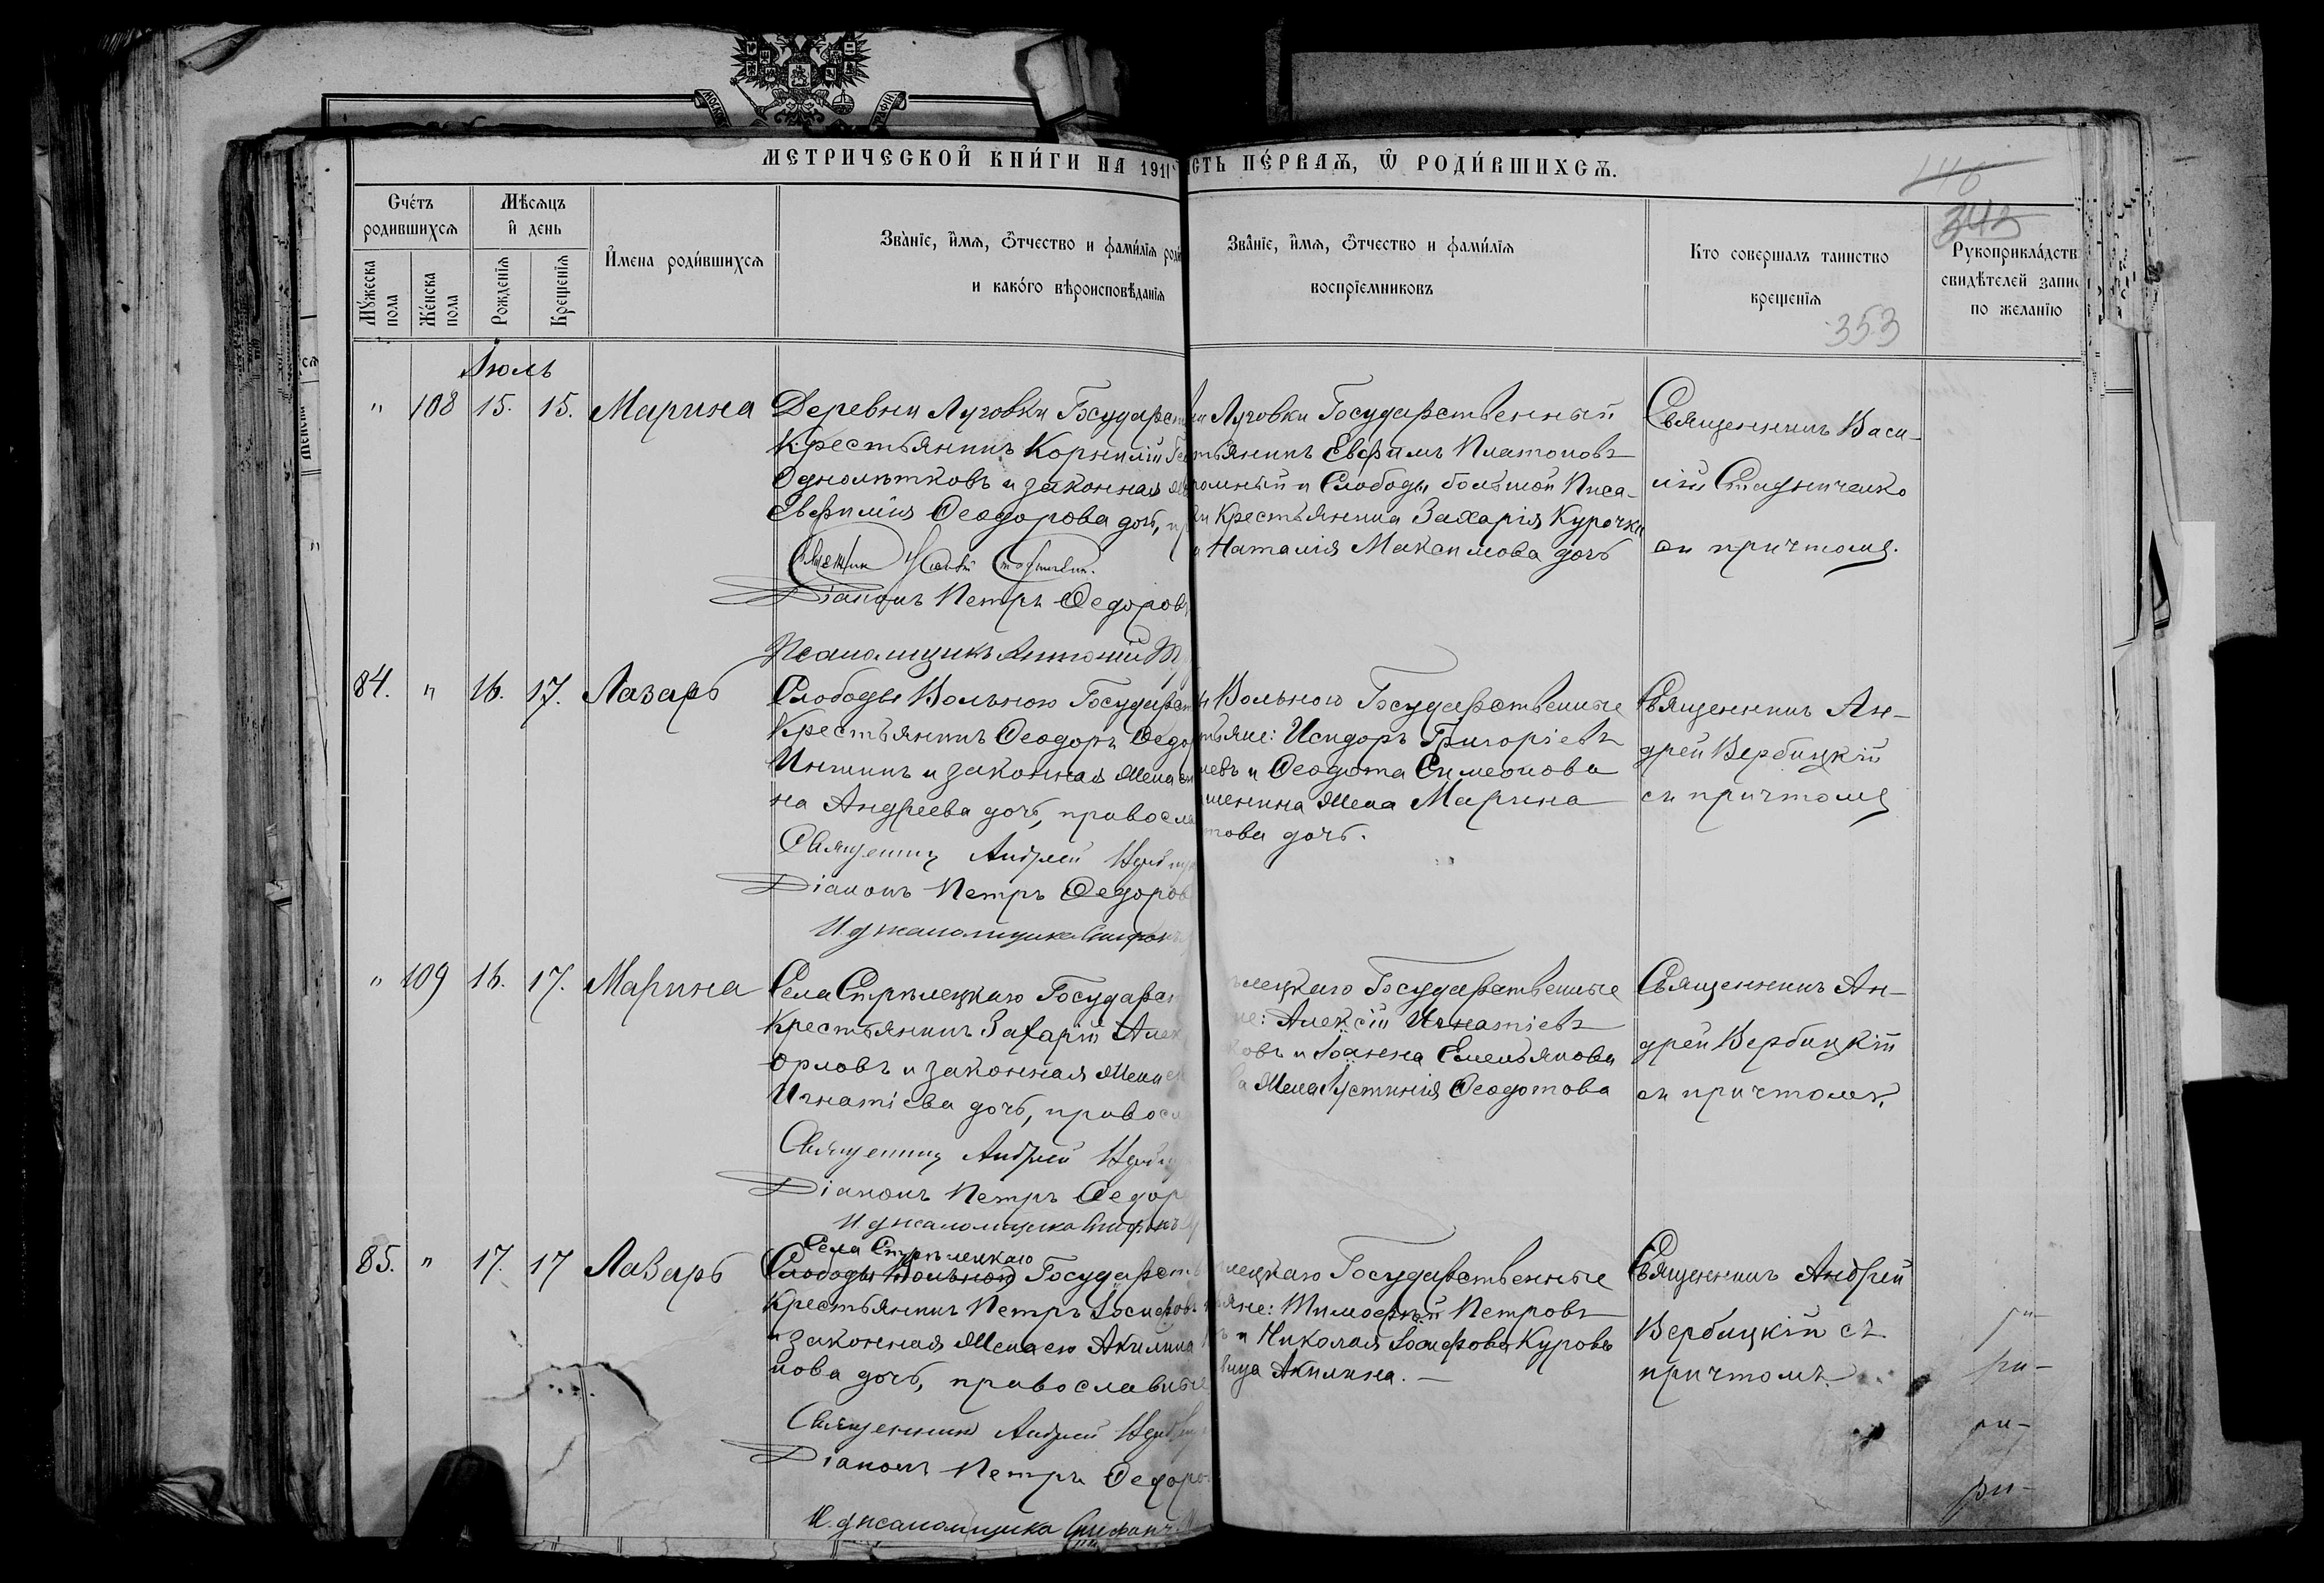 МЕТРИЧЕСКОЙ КНИ́ГИ НА 1911
СТЬ ПЕ́РВАѦ, Ѿ РОДИ́ВШИХСѦ.
Сче́тъ родившихсѧ
Мѣсѧцъ и день
Имена роди́вшихсѧ
Зва́нїе, и́мѧ, о́тчество и фами́лїѧ роди
и како́го вѣроисповѣданїѧ
Зва́нїе, и́мѧ, о́тчество и фами́лїѧ
воспрїемниковъ
Кто совершалъ таинство
крещенїѧ
Рукоприкла́дств
свидѣтелей запи
по желанїю
Мꙋжеска пола
Женска пола
Рожденїѧ
Крещенїѧ
353
Іюль
" 108 15. 15. Марина
Деревни Луговки Государст
крестьянинъ Корнилій
Однолѣтковъ и законная
Евфимія Ѳеодорова дочь,
Діаконъ Петръ Ѳедоров
Псаломщикъ Антоній
Луговки Государственный
тьянинъ Евфимъ Платоновъ
и Слободы большой Писа-
крестьянина Захарія Курочки
Наталія Максимова дочь
Священникъ Васи-
лій Стадниченко
съ причтомъ.
84. " 16. 17. Лазарь
Слободы Вольною Государст
крестьянинъ Ѳеодоръ Ѳедо
и законная жена
на Андреева дочь, правосла
Священникъ Андрей
Діаконъ Петръ Ѳедоров
И. д. псаломщика
Вольною Государственные
тьяне: Исидоръ Григоріевъ
и Ѳеодота Симеонова
жена Марина
това дочь.
Священникъ Ан-
дрей Вербицкій
съ причтомъ
" 109 16. 17. Марина
Села Стрѣлецкаго Государст
крестьянинъ Захарій Алек
Орловъ и законная жена
Игнатіева дочь, правосл
Священникъ Андрей
Діаконъ Петръ Ѳедор
И. д. псаломщика
лецкаго Государственные
не: Алексій Игнатіевъ
овъ и Іоанна Емельянова
жена Устинія Ѳеодотова
Священникъ Ан-
дрей Вербицкій
съ причтомъ.
85. " 17. 17 Лазарь
Села Стрѣлецкаго
Слободы Вольною Государств
крестьянинъ Петръ Іосифовъ
и законная жена его Акилина
нова дочь, православные
Священникъ Андрей
Діаконъ Петръ Ѳедоро
И. д. псаломщика
лецкаго Государственные
яне: Тимоѳей Петровъ
и Николая Іосифова Курова
вица Акилина. —
Священникъ Андрей
Вербицкій съ
причтомъ.